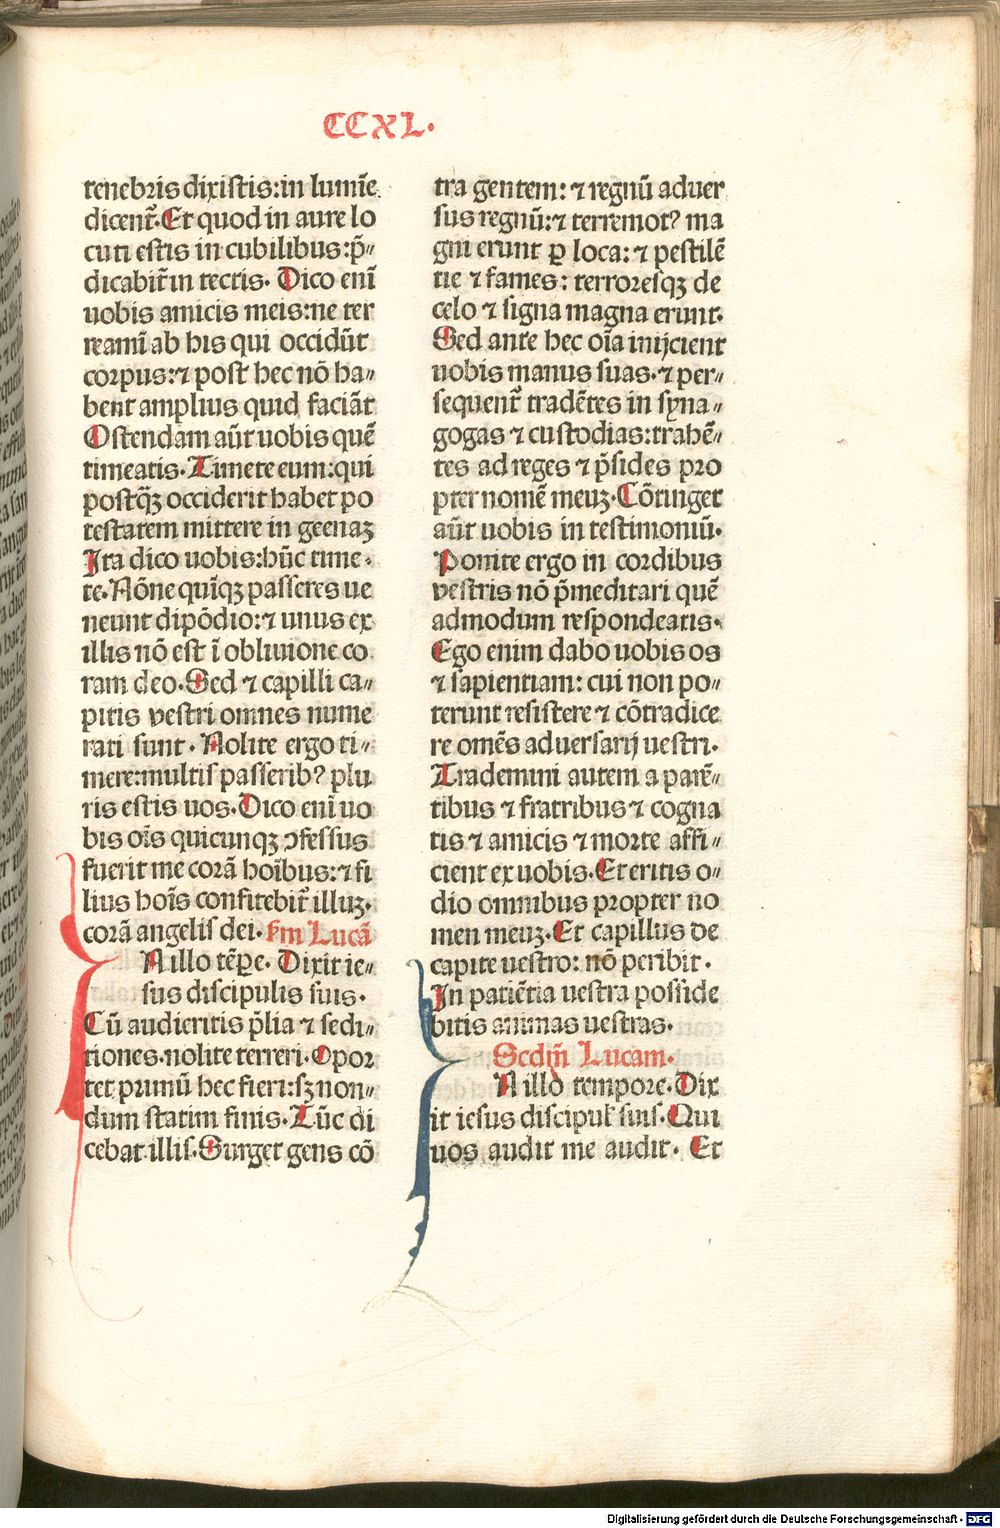 CCXL.
tenebris dixistis:in lumīe
dicent̄.Et quod in aure lo
cuti estis in cubilibus:p̄⸗
dicabit̄ in tectis. Dico eni̅
uobis amicis meis:ne ter
reami̅ ab his qui occidūt
corpus:⁊ post hec nō ha⸗
bent amplius quid faciāt
Ostendam aūt uobis quē
timeatis.Timete eum:qui
postq̄ꝫ occiderit habet po
testatem mittere in geenaꝫ
Ita dico uobis:hūc time.
te.Nōne quīqꝫ passeres ue
neunt dipōdio:⁊ unus ex
illis nō est ī obliuione co
ram deo.Sed ⁊ capilli ca⸗
pitis vestri omnes nume
rati sunt. Nolite ergo ti⸗
mere:multis passerib? plu
ris estis uos.Dico eni̅ uo
bis oīs quicunqꝫ ↄfessus
fuerit me corā hoībus:⁊ fi
lius hoīs confitebit̄ illuꝫ.
corā angelis dei. sm̄ Lucā
N illo tēꝑe. Dixit ie⸗
sus discipulis suis.
Cū audieritis p̄lia ⁊ sedi⸗
tiones.nolite terreri.Opor
tet primū hec fieri:sꝫ non⸗
dum statim finis.Tūc di
cebat illis.Surget gens cō
tra gentem:⁊ regnū aduer
sus regnū:⁊ terremot? ma
gni erunt ꝑ loca:⁊ pestilē
tie ⁊ fames: terroresqꝫ de
celo ⁊ signa magna erunt.
Sed ante hec oīa inijcient
uobis manus suas.⁊ per⸗
sequent̄ tradētes in syna⸗
gogas ⁊ custodias:trahē⸗
tes ad reges ⁊ p̄sides pro
pter nomē meuꝫ.Cōtinget
aūt uobis in testimoniū.
Ponite ergo in cordibus
vestris nō p̄meditari quē
admodum respondeatis.
Ego enim dabo uobis os
⁊ sapientiam: cui non po⸗
terunt resistere ⁊ cōtradice
re omēs aduersarij uestri.
Trademini autem a parē⸗
tibus ⁊ fratribus ⁊ cogna
tis ⁊ amicis ⁊ morte affi⸗
cient ex uobis.Et eritis o⸗
dio omnibus propter no
men meuꝫ.Et capillus de
capite uestro: nō peribit.
In patiētia uestra posside
bitis animas uestras.
Scdm̄ Lucam.
N illo tempore.Dix
it iesus discipul̄ suis.Qui
uos audit me audit. Et
Digitalisierung gefördert durch die Deutsche Forschungsgemeinschaft - DFG